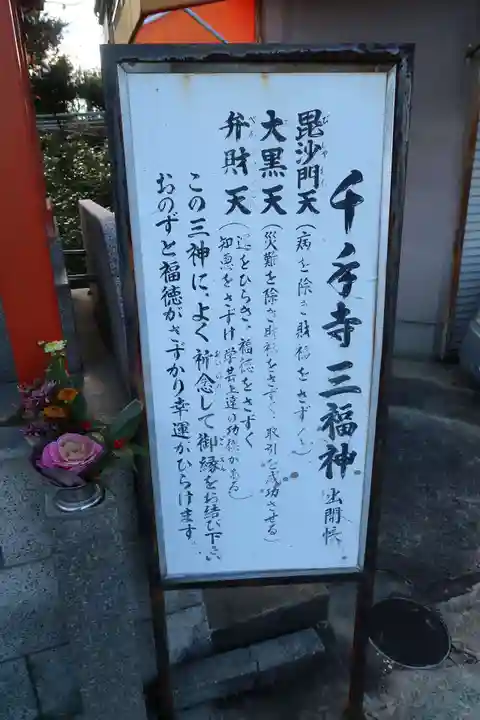 千ノ手寺 三福神 出開帳
毘沙門天（病を除き財福をさずく）
大黒天（災難を除き財福をさずく、取引を成功させる）
弁財天（運をひらき、福徳をさずく
知恵をさずけ学芸上達の功徳がある）
この三神に、よく祈念して御縁をお結び下さい
おのずと福徳がさずかり幸運がひらけます